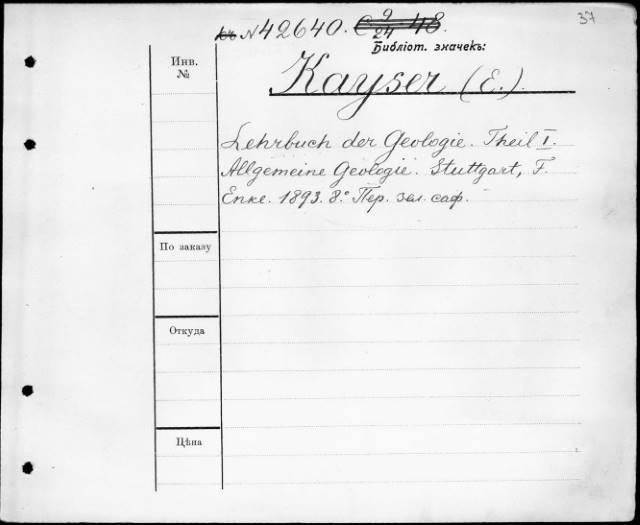 37
къ N 42640. C 9/24 48.
Библіот. значекъ:
Инв.
№
Kayser (E.).
Lehrbuch der Geologie. Theil I.
Allgemeine Geologie. Stuttgart, F.
Enke. 1893. 8.° Пер. зел. саф.
По заказу
Откуда
Цѣна